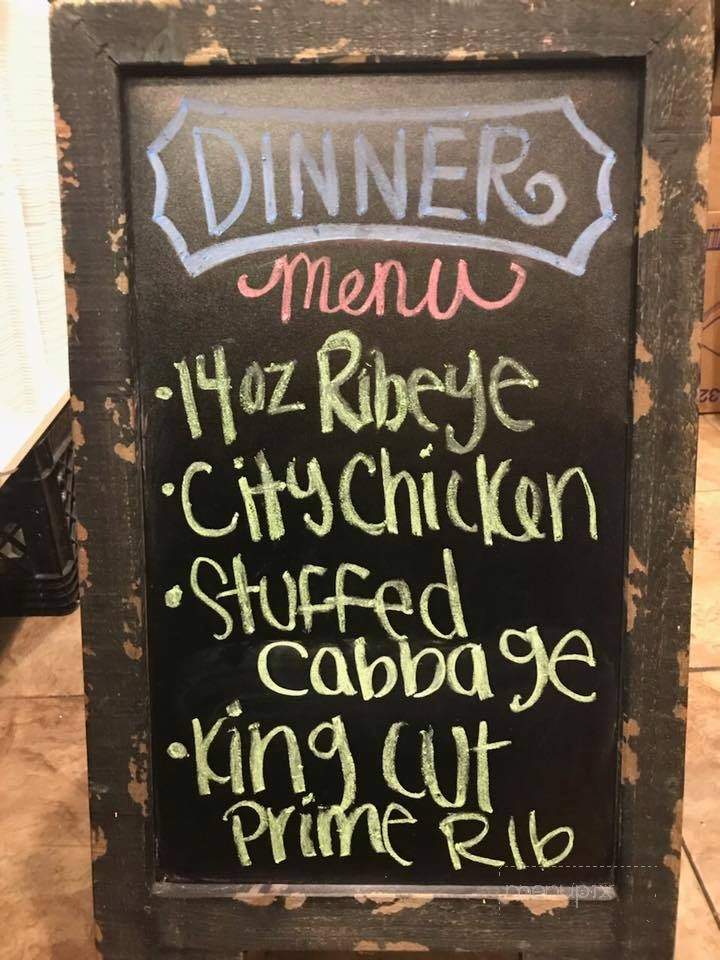 DINNER
menu
·14oz Ribeye
·City Chicken
·Stuffed
cabbage
·King Cut
Prime Rib
menupix